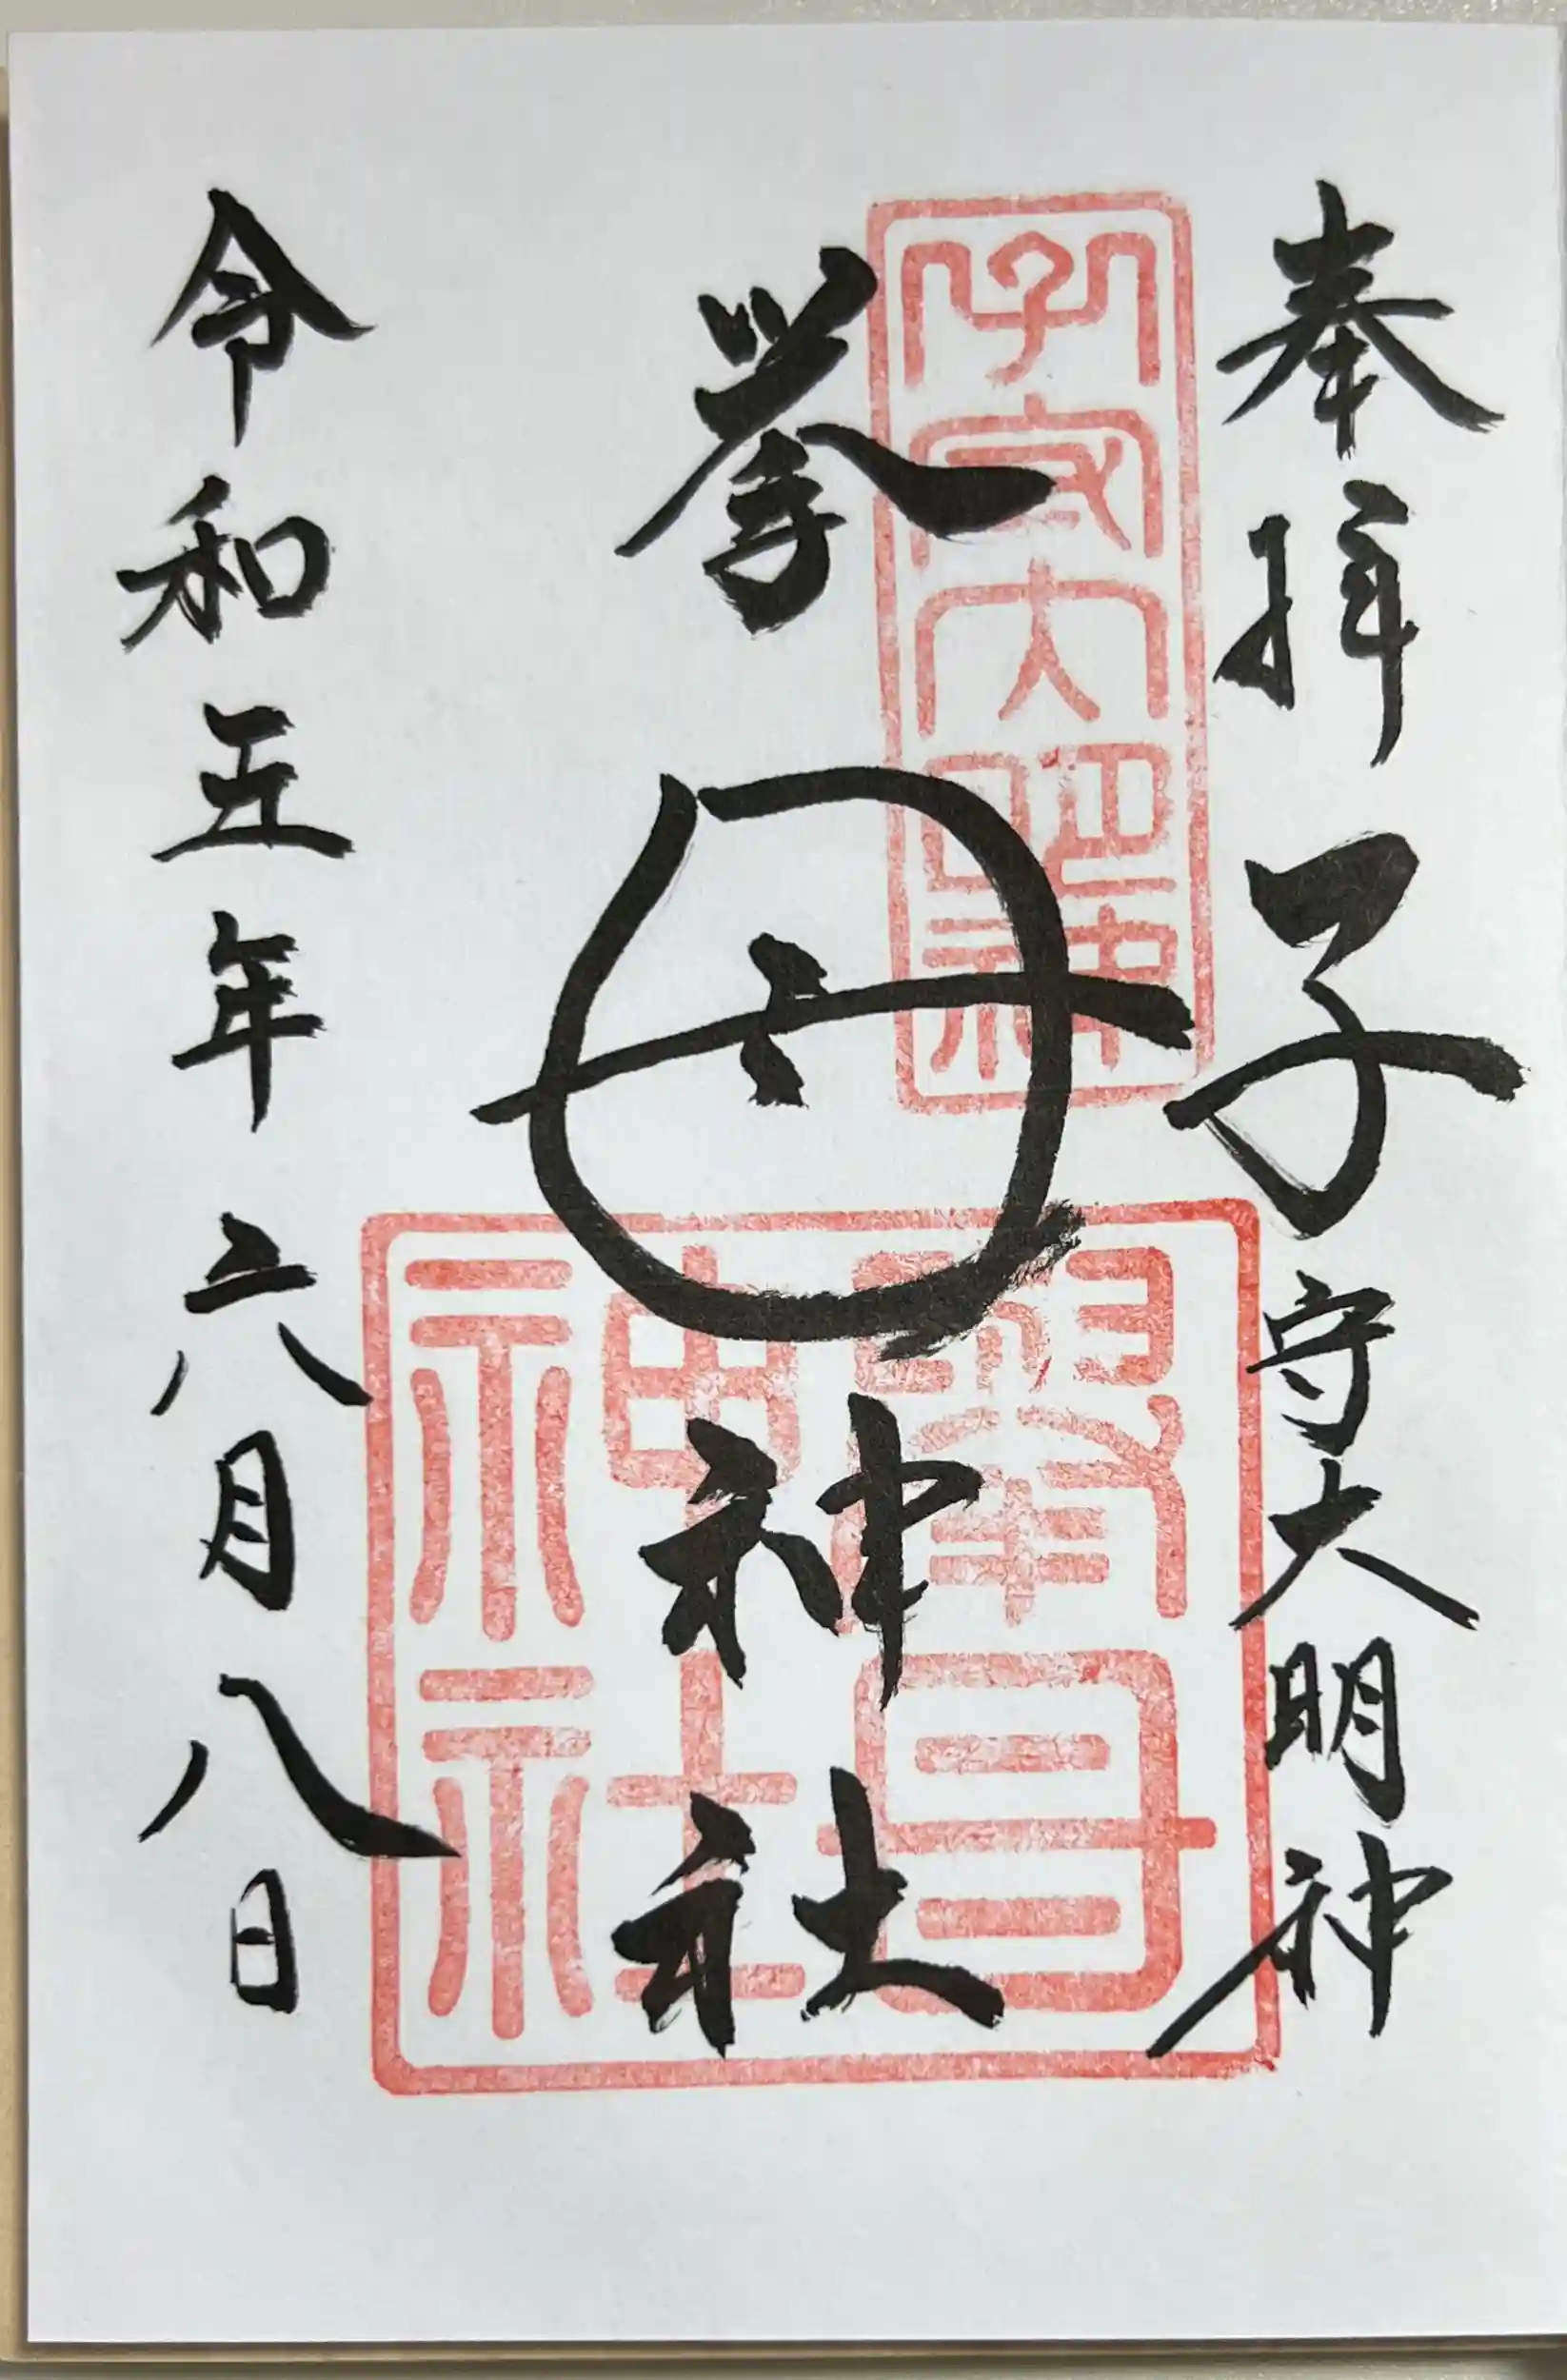 奉拝 子守大明神
子守大明神
挙母神社
擧母神社
令和五年六月八日